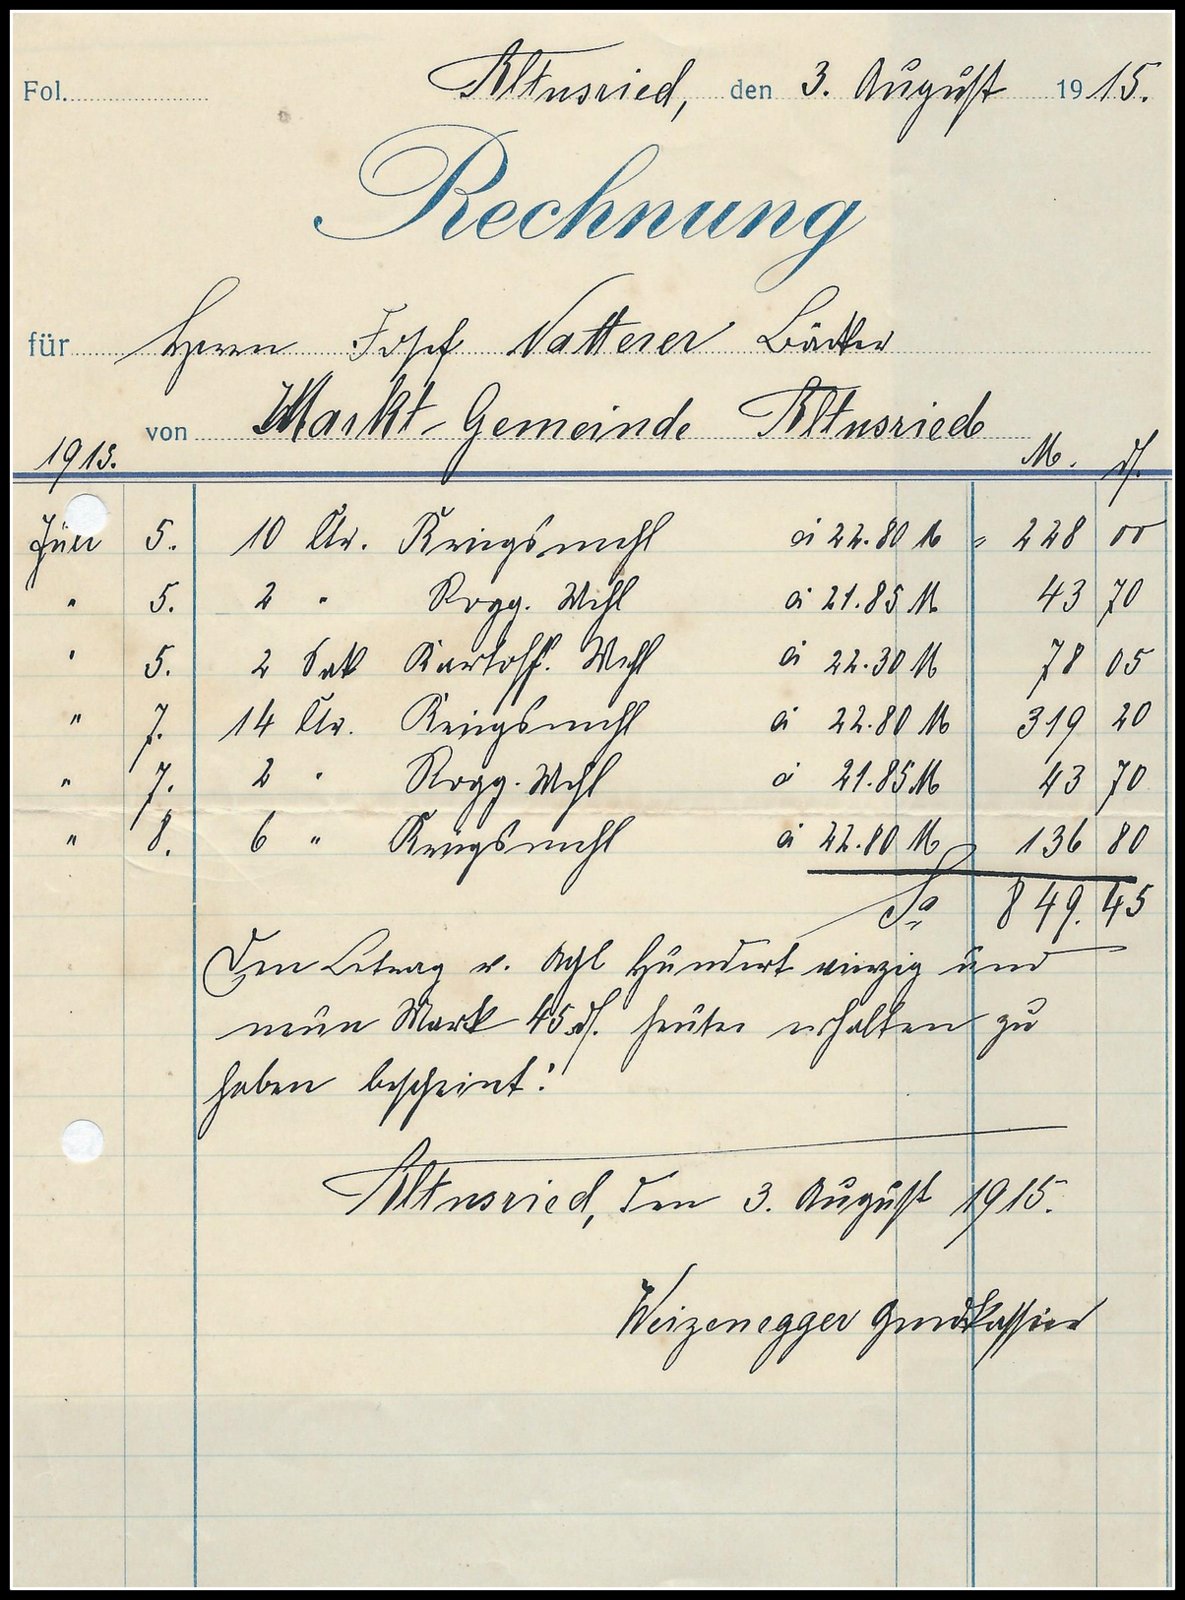 Fol. Altusried, den 3. August 1915.
Rechnung
für Herrn Josef Natterer Bäcker
von Markt-Gemeinde Altusried
1915. M. ₰.
Juli 5. 10 Ztr. Kriegsmehl à 22.80 M = 228 00
" 5. 2 " Rogg. Mehl à 21.85 M 43 70
" 5. 2 Sak Kartoff. Mehl à 22.30 M 78 05
" 7. 14 Ztr. Kriegsmehl à 22.80 M 319 20
" 7. 2 " Rogg. Mehl à 21.85 M 43 70
" 8. 6 " Kriegsmehl à 22.80 M 136 80
Sa 849.45
Den Betrag v. Acht Hundert vierzig und
neun Mark 45 ₰. heute erhalten zu
haben bescheint:
Altusried, den 3. August 1915.
Weizenegger Gmdkassier